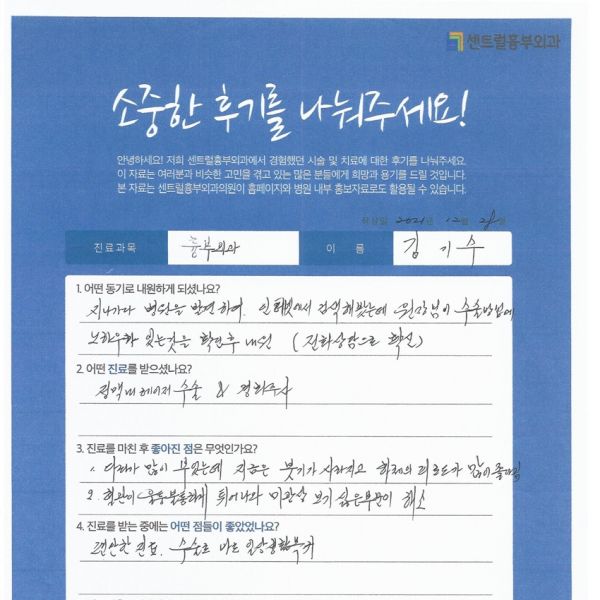 센트럴흉부외과
소중한 후기를 나눠주세요!
안녕하세요! 저희 센트럴흉부외과에서 경험했던 시술 및 치료에 대한 후기를 나눠주세요.
이 자료는 여러분과 비슷한 고민을 겪고 있는 많은 분들에게 희망과 용기를 드릴 것입니다.
본 자료는 센트럴흉부외과의원이 홈페이지와 병원 내부 홍보자료로도 활용될 수 있습니다.
작성일 2021년 12월 28일
진료과목 흉부외과 이 름 김 기 수
1. 어떤 동기로 내원하게 되셨나요?
지나가다 병원을 발견하여, 인터넷에서 검색해봤는데 원장님이 수술방법에
노하우가 있는것을 확인후 내원 (전화상담으로 확신)
2. 어떤 진료를 받으셨나요?
정맥내 레이저 수술 & 경화주사
3. 진료를 마친 후 좋아진 점은 무엇인가요?
1. 다리가 많이 부었는데 지금은 붓기가 사라지고 하체의 피로도가 많이 좋아짐
2. 혈관이 울퉁불퉁하게 튀어나와 미관상 보기 싫은부분이 해소
4. 진료를 받는 중에는 어떤 점들이 좋았었나요?
편안한 진료. 수술후 바로 일상생활복귀